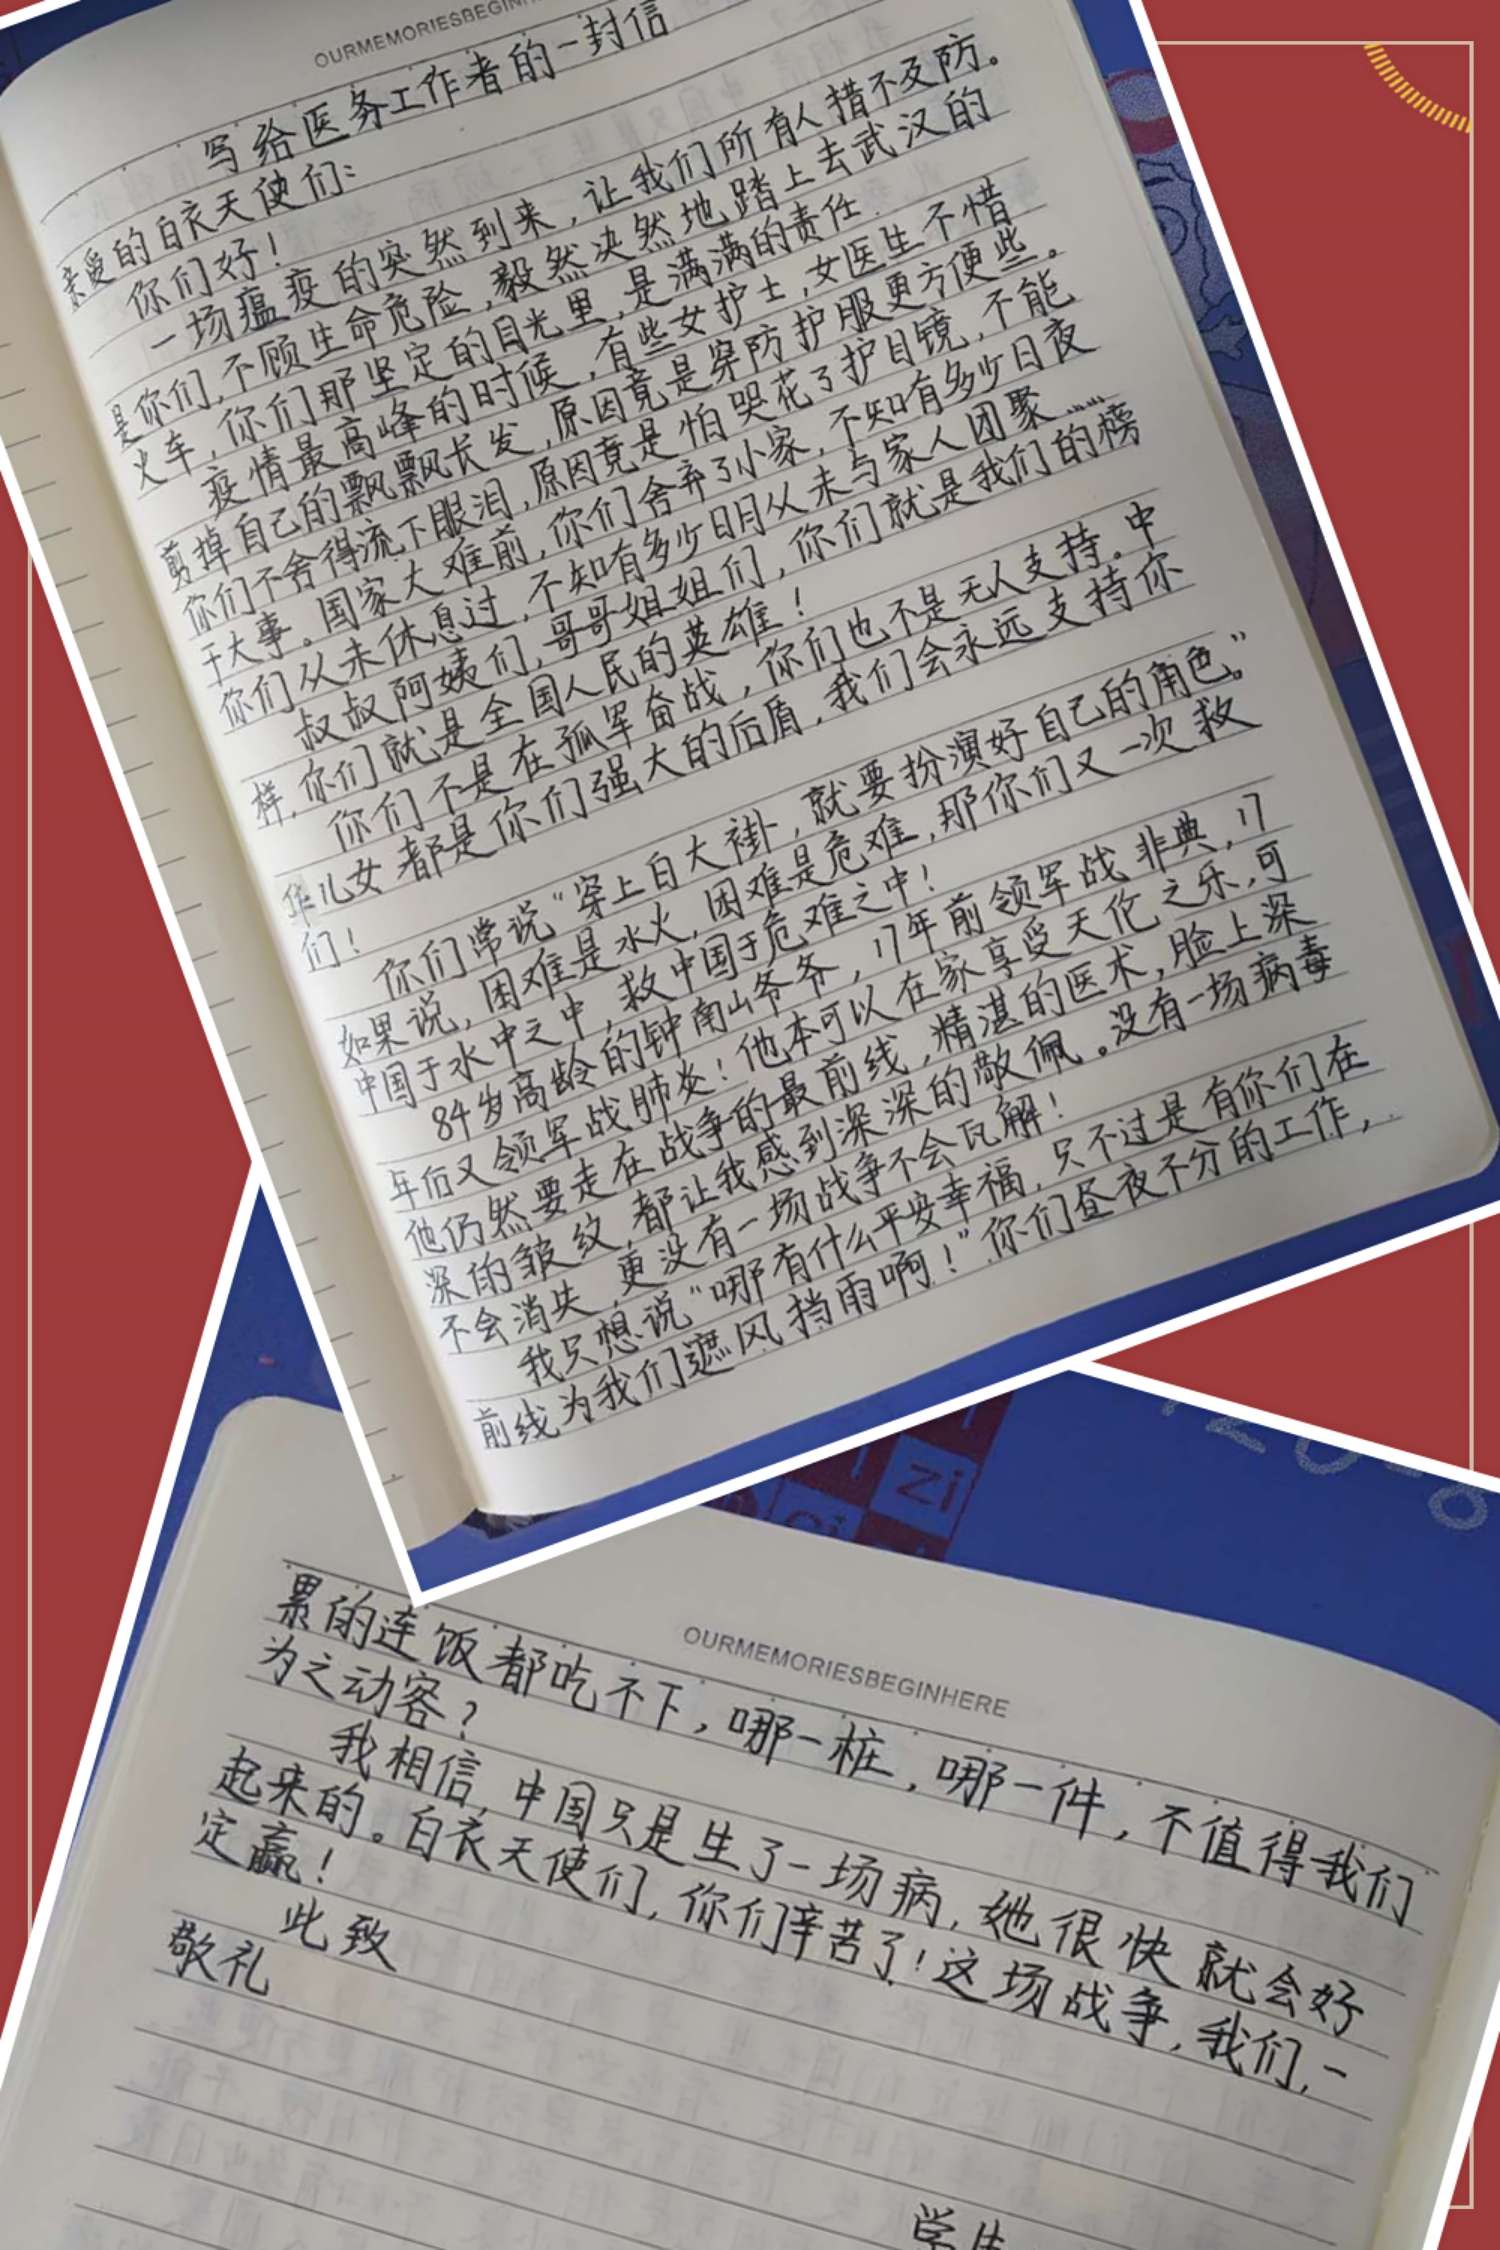 OURMEMORIESBEGINH
写给医务工作者的一封信
亲爱的白衣天使们:
你们好!
一场瘟疫的突然到来,让我们所有人措不及防。
是你们,不顾生命危险,毅然决然地踏上去武汉的
火车,你们那坚定的目光里,是满满的责任.
疫情最高峰的时候,有些女护士,女医生不惜
剪掉自己的飘飘长发,原因竟是穿防护服更方便些。
你们不舍得流下眼泪,原因竟是怕哭花了护目镜,不能
干大事。国家大难前,你们舍弃了小家,不知有多少日夜
你们从未休息过,不知有多少日月从未与家人团聚……
叔叔阿姨们,哥哥姐姐们,你们就是我们的榜
样,你们就是全国人民的英雄!
你们不是在孤军奋战,你们也不是无人支持。中
华儿女都是你们强大的后盾,我们会永远支持你
们!
你们常说“穿上白大褂,就要扮演好自己的角色。”
如果说,困难是水火,困难是危难,那你们又一次救
中国于水中之中,救中国于危难之中!
84岁高龄的钟南山爷爷,17年前领军战非典,17
年后又领军战肺炎!他本可以在家享受天伦之乐,可
他仍然要走在战争的最前线,精湛的医术,脸上深
深的皱纹,都让我感到深深的敬佩。没有一场病毒
不会消失,更没有一场战争不会瓦解!
我只想说“哪有什么平安幸福,只不过是有你们在
前线为我们遮风挡雨啊!”你们昼夜不分的工作,
Zi
OURMEMORIESBEGINHERE
累的连饭都吃不下,哪一桩,哪一件,不值得我们
为之动容?
我相信,中国只是生了一场病,她很快就会好
起来的。白衣天使们,你们辛苦了!这场战争,我们,一
定赢!
此致
敬礼
学生